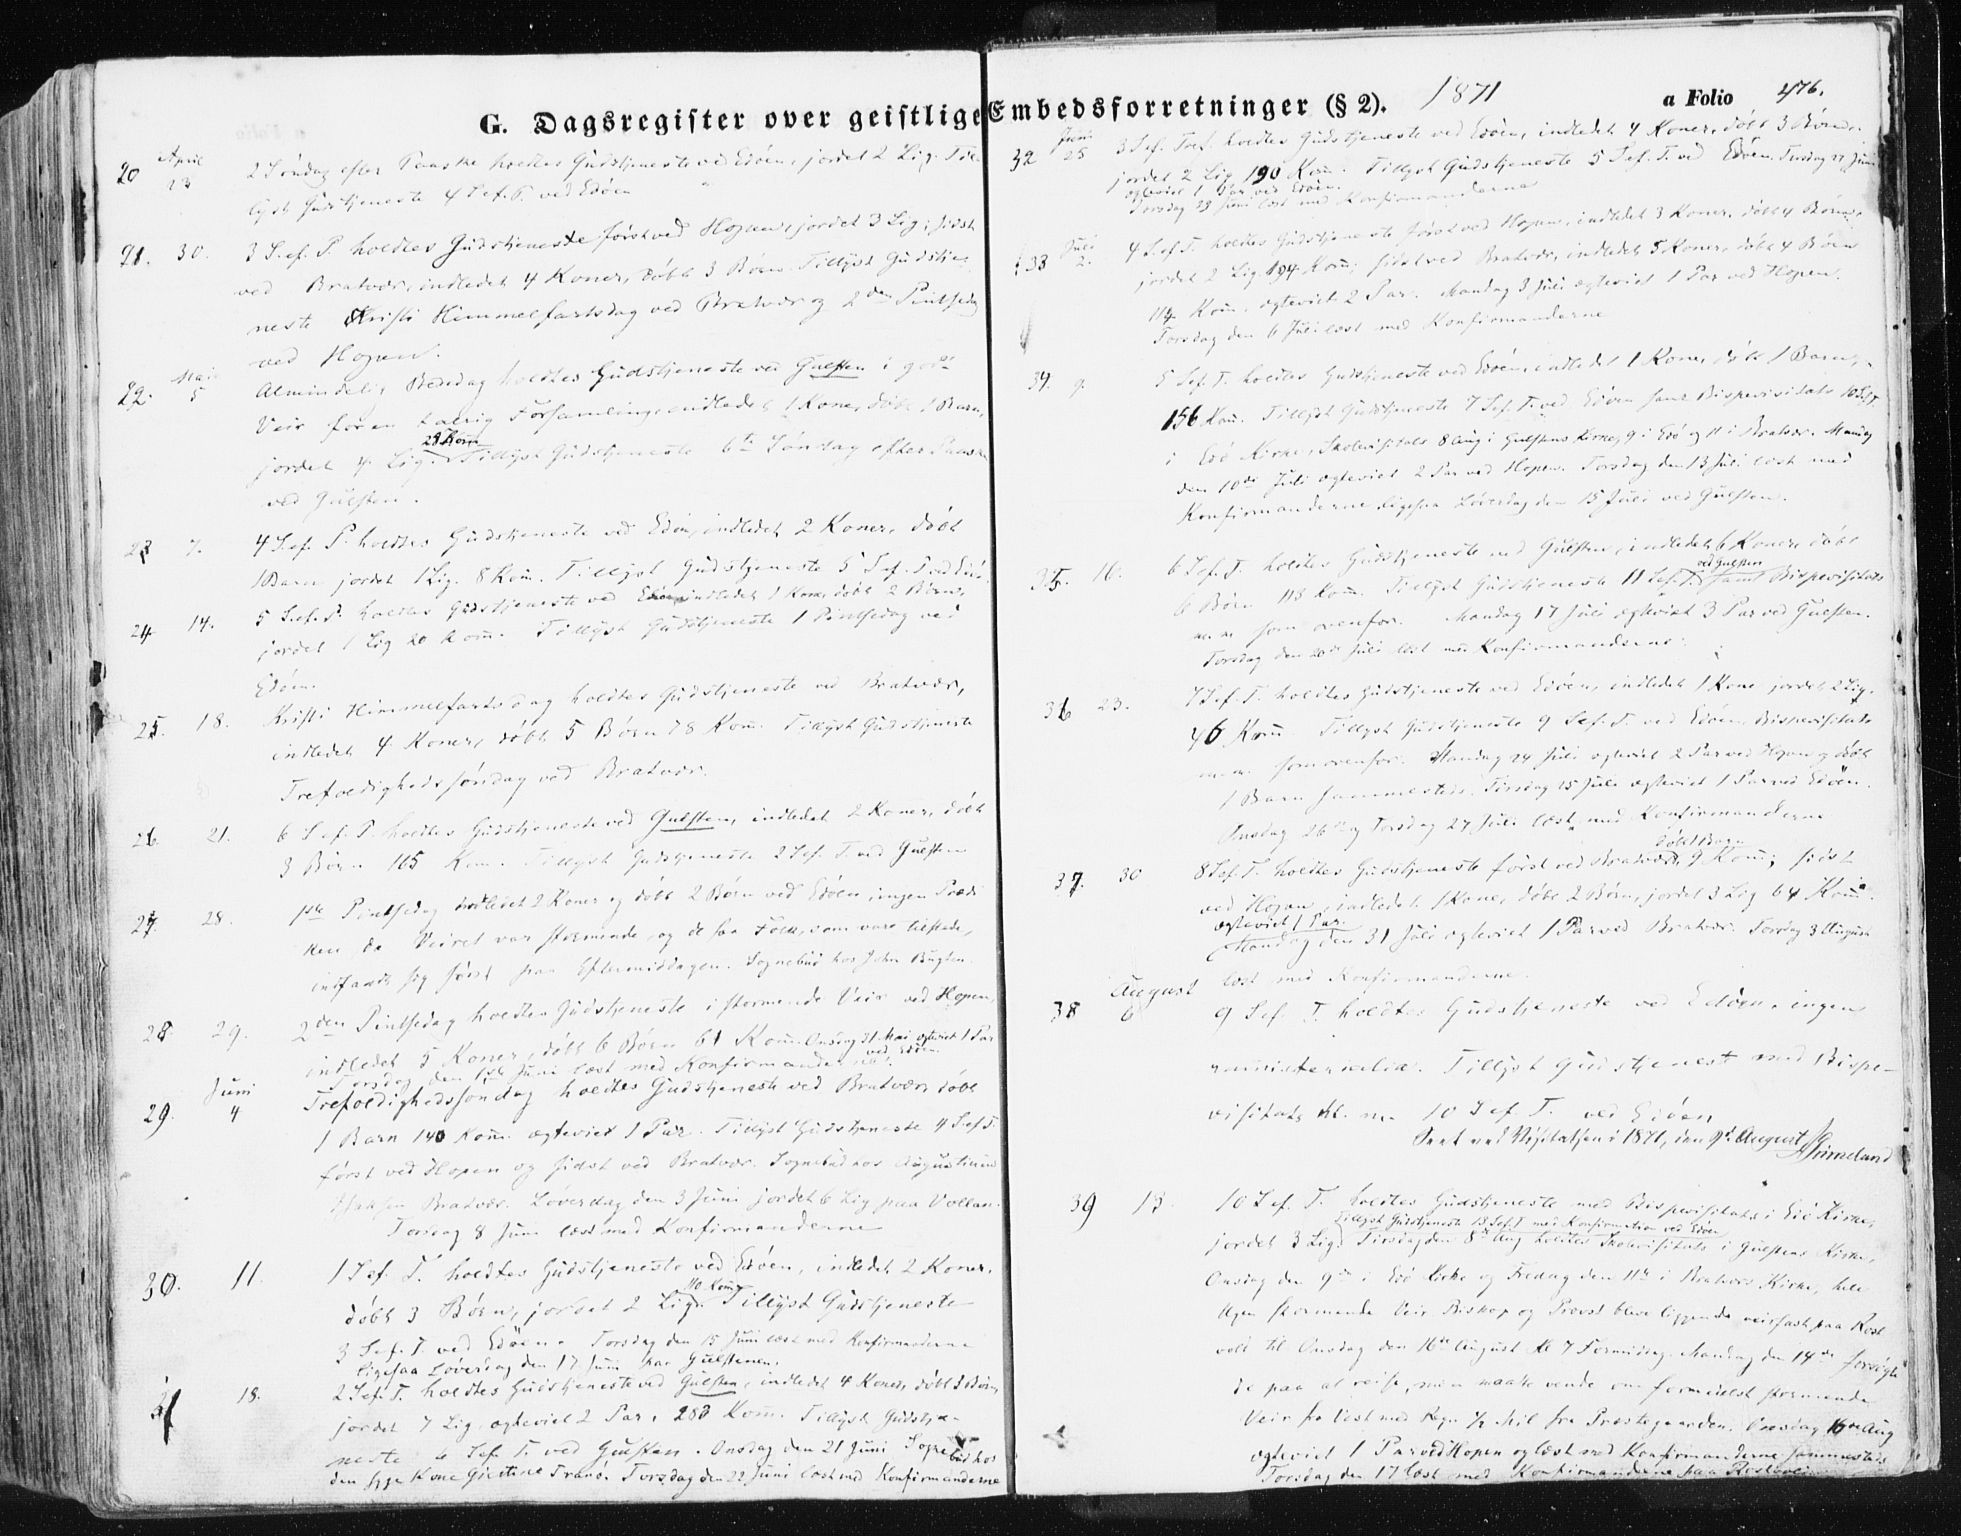 G. Dagsregister over geistlige Embedsforretninger (§ 2). 1871 a Folio 476.
20 April 23 2 Søndag efter Paaske holdtes Gudstjeneste ved Edøen, jordet 2 Lig. Til-
lyst Gudstjeneste 4 S. ef. P. ved Edøen
21. 30. 3 S. ef. P. holdtes Gudstjeneste først ved Hopen, jordet 3 Lig; sidst
ved Bratvær, indledet 4 Koner, døbt 3 Børn. Tillyst Gudstje-
neste Kristi Himmelfartsdag ved Bratvær og 2den Pintsedag
ved Hopen.
22. Mai 5 Almindelig Bededag holdtes Gudstjeneste ved Gulsten i godt
Veir for en talrig Forsamling, indledet 1 Kone, døbt 1 Barn,
28 Kom.
jordet 4 Lig. Tillyst Gudstjeneste 6te Søndag efter Paaske
ved Gulsten.
23 7. 4 S. ef. P. holdtes Gudstjeneste ved Edøen, indledet 2 Koner, døbt
1 Barn jordet 1 Lig. 8 Kom. Tillyst Gudstjeneste 5 S. ef. P. ved Edøen
24 14. 5 S. ef. P. holdtes Gudstjeneste ved Edøen, indledet 1 Kone, døbt 2 Børn,
jordet 1 Lig 20 Kom. Tillyst Gudstjeneste 1 Pintsedag ved
Edøen.
25. 18. Kristi Himmelfartsdag holdtes Gudstjeneste ved Bratvær,
indledet 4 Koner, døbt 5 Børn 78 Kom. Tillyst Gudstjeneste
Trefoldighedssøndag ved Bratvær.
26 21. 6 S. ef. P. holdtes Gudstjeneste ved Gulsten, indledet 2 Koner, døbt
3 Børn 165 Kom. Tillyst Gudstjeneste 2 S. ef. T. ved Gulsten
27. 28. 1ste Pintsedag indledet 2 Koner og døbt 2 Børn ved Edøen, ingen Prædi-
ken, da Veiret var stormende, og de faa Folk, som vare tilstede,
indfandt sig først paa Eftermiddagen. Sognebud hos John Bugten.
28 29. 2den Pintsedag holdtes Gudstjeneste i stormende Veir ved Hopen,
indledet 5 Koner, døbt 6 Børn 61 Kom. Onsdag 31 Mai egteviet 1 Par
ved Edøen
Torsdag den 1ste Juni læst med Konfirmanderne.
29. Juni 4 Trefoldighedssøndag holdtes Gudstjeneste ved Bratvær, døbt
1 Barn 140 Kom. egteviet 1 Par. Tillyst Gudstjeneste 4 S. ef. T.
først ved Hopen og sidst ved Bratvær. Sognebud hos Augustinus
Bratvær. Løverdag den 3 Juni jordet 6 Lig paa Vollan.
Torsdag 8 Juni læst med Konfirmanderne
30. 11. 1 S. ef. T. holdtes Gudstjeneste ved Edøen, indledet 2 Koner,
110 Kom.
døbt 3 Børn, jordet 2 Lig. Tillyst Gudstjeneste
3 S. ef. T. ved Edøen. Torsdag den 15 Juni læst med Konfirmanderne
ligesaa Løverdag den 17 Juni paa Gulstenen.
31 18. 2 S. ef. T. holdtes Gudstjeneste ved Gulsten, indledet 4 Koner, døbt Børn,
jordet 7 Lig, egteviet 2 Par, 280 Kom. Tillyst Gudstje-
neste 6 S. ef. T. ved Gulsten. Onsdag den 21 Juni Sognebud hos
den syge Kone Gjertine Tranø. Torsdag den 22 Juni læst med Konfirmanderne
32 Juni 25 3 S. ef. Tref. holdtes Gudstjeneste ved Edøen, indledet 4 Koner, døbt 3 Børn.
jordet 2 Lig 190 Kom. Tillyst Gudstjeneste 5 S. ef. T. ved Edøen. Tirsdag 27 Juni
egteviet 1 Par ved Edøen.
Torsdag 29 Juni læst med Konfirmanderne
33 Juli 2. 4 S. ef. T. holdtes Gudstjeneste først ved Hopen, indledet 3 Koner, døbt 4 Børn,
jordet 2 Lig 194 Kom; sidst ved Bratvær, indledet 5 Koner, døbt 4 Børn
114 Kom. egteviet 2 Par. Mandag 3 Juli egteviet 1 Par ved Hopen.
Torsdag den 6 Juli læst med Konfirmanderne
34. 9. 5 S. ef. T. holdtes Gudstjeneste ved Edøen, indledet 1 Kone, døbt 1 Barn,
156 Kom. Tillyst Gudstjeneste 7 S. ef. T. ved Edøen samt Bispevisitats 10 S. ef. T.
i Edø Kirke, Skolevisitats 8 Aug i Gulstens Kirke, 9 i Edø og 11 i Bratvær. Mandag
den 10de Juli egteviet 2 Par ved Hopen. Torsdag den 13 Juli læst med
Konfirmanderne ligesaa Løverdag den 15 Juli ved Gulsten.
35. 16. 6 S. ef. T. holdtes Gudstjeneste ved Gulsten, indledet 6 Koner, døbt
ved Gulsten
6 Børn 118 Kom. Tillyst Gudstjeneste 11 S. ef. T. samt Bispevisitats
m. m. som ovenfor. Mandag 17 Juli egteviet 3 Par ved Gulsten.
Torsdag den 20de Juli læst med Konfirmanderne.
36 23. 7 S. ef. T. holdtes Gudstjeneste ved Edøen, indledet 1 Kone jordet 2 Lig.
46 Kom. Tillyst Gudstjeneste 9 S. ef. T. ved Edøen, Bispevisitats
m. m. som ovenfor. Mandag 24 Juli egteviet 2 Par ved Hopen og døbt
1 Barn sammesteds. Tirsdag 25 Juli egteviet 1 Par ved Edøen.
Onsdag 26de og Torsdag 27 Juli læst med Konfirmanderne
døbt 1 Barn
37. 30 8 S. ef. T. holdtes Gudstjeneste først ved Bratvær, 9 Kom; sidst
ved Hopen, indledet 1 Kone, døbt 2 Børn, jordet 3 Lig 64 Kom.
egteviet 1 Par.
Mandag den 31 Juli egteviet 1 Par ved Bratvær. Torsdag 3 August
læst med Konfirmanderne.
38 August 6 9 S. ef. T. holdtes Gudstjeneste ved Edøen, ingen
ministerialia. Tillyst Gudstjenest med Bispe-
visitats kl. m. 10 S. ef. T. ved Edøen
Seet ved Visitatsen i 1871, den 9de August Grimelund
39 13. 10 S. ef. T. holdtes Gudstjeneste med Bispevisitats i Edø Kirke,
Tillyst Gudstjeneste 13 S. ef. T. med Konfirmation ved Edøen
jordet 3 Lig. Tirsdag den 8de Aug holdtes Skolevisitats i Gulstens Kirke,
Onsdag den 9de i Edø Kirke og Fredag den 11te i Bratværs Kirke, hele
Ugen stormende Veir. Biskop og Provst bleve liggende veirfast paa Rost
vold til Onsdag den 16de August Kl 7 Formiddag. Mandag den 14de forsøgte
de paa at reise, men maatte vende om formedelst stormende
Veir fra Vest med Regn ½ Mil fra Præstegaarden. Onsdag 16de Aug
egteviet 1 Par ved Hopen og læst med Konfirmanderne sammesteds
Torsdag den 17 læst med Konfirmanderne paa